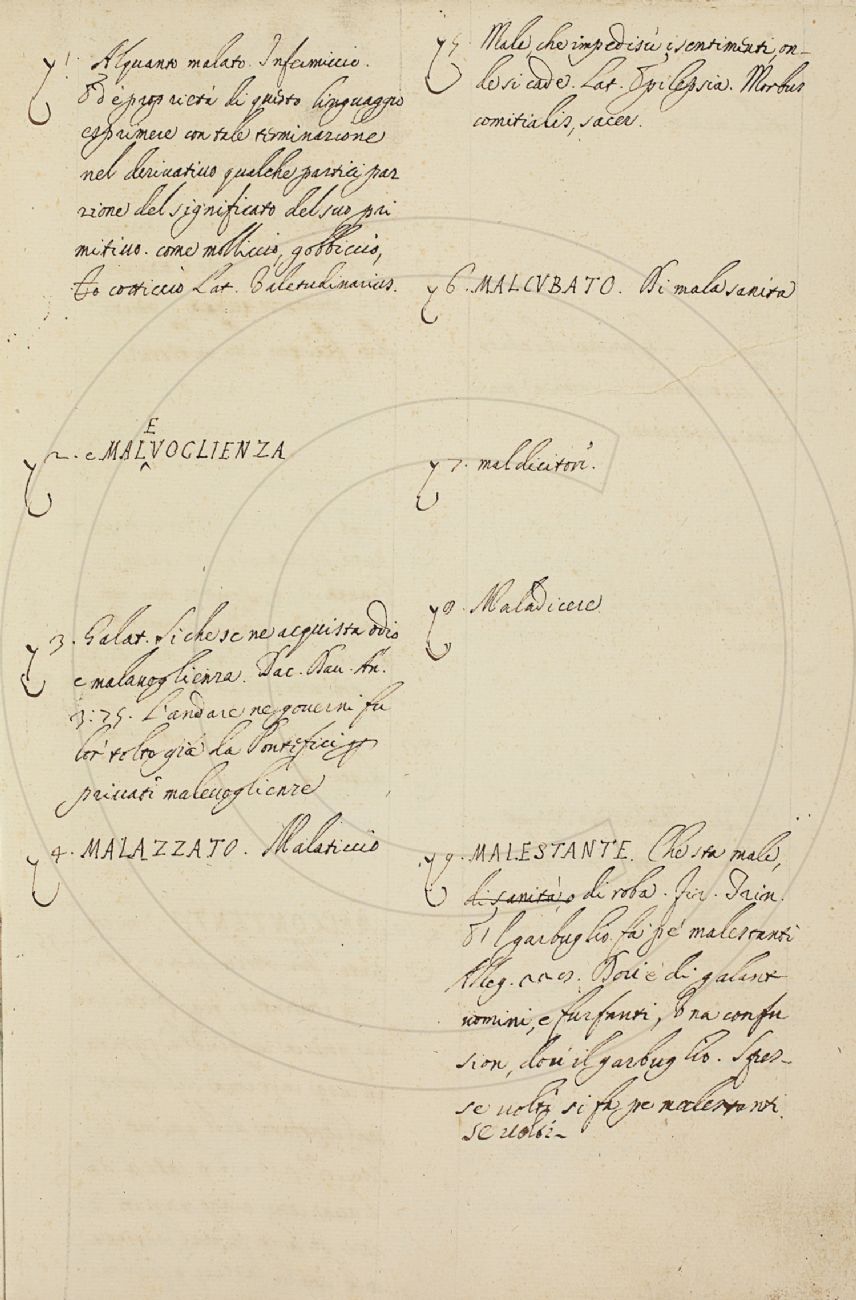 1. Alquanto malato. Infermiccio.
Ed è proprietà di questo linguaggio
esprimere con tale terminazione
nel derivativo qualche partici par
zione del significato del suo pri
mitivo. come molliccio, gobbiccio,
cotticcio Lat. Valetudinarius.
2. e MALVOGLIENZA
E
3. Galat. Si che se ne acquista odio
e malavoglienza. Tac. Dav. An.
3:75. L'andare ne governi fu
lor tolto già da Pontefici p
privati malevoglienze
4. MALAZZATO. Malaticcio
5. Male che impedisce i sentimenti, on-
de si cade. Lat. Epilepsia. Morbus
comitialis, sacer.
6. MALCUBATO. Di mala sanità
7. maldicitori.
8. Maladicere
9. MALESTANTE. Che sta male,
di sanità, o di roba. Fir. Trin.
E Il garbuglio fa pe' malestanti
Alleg. Dov'è di galant
uomini, e furfanti, Una confu
sion, dov'è il garbuglio. Spes-
se volte si fa pe malestanti
se volte-